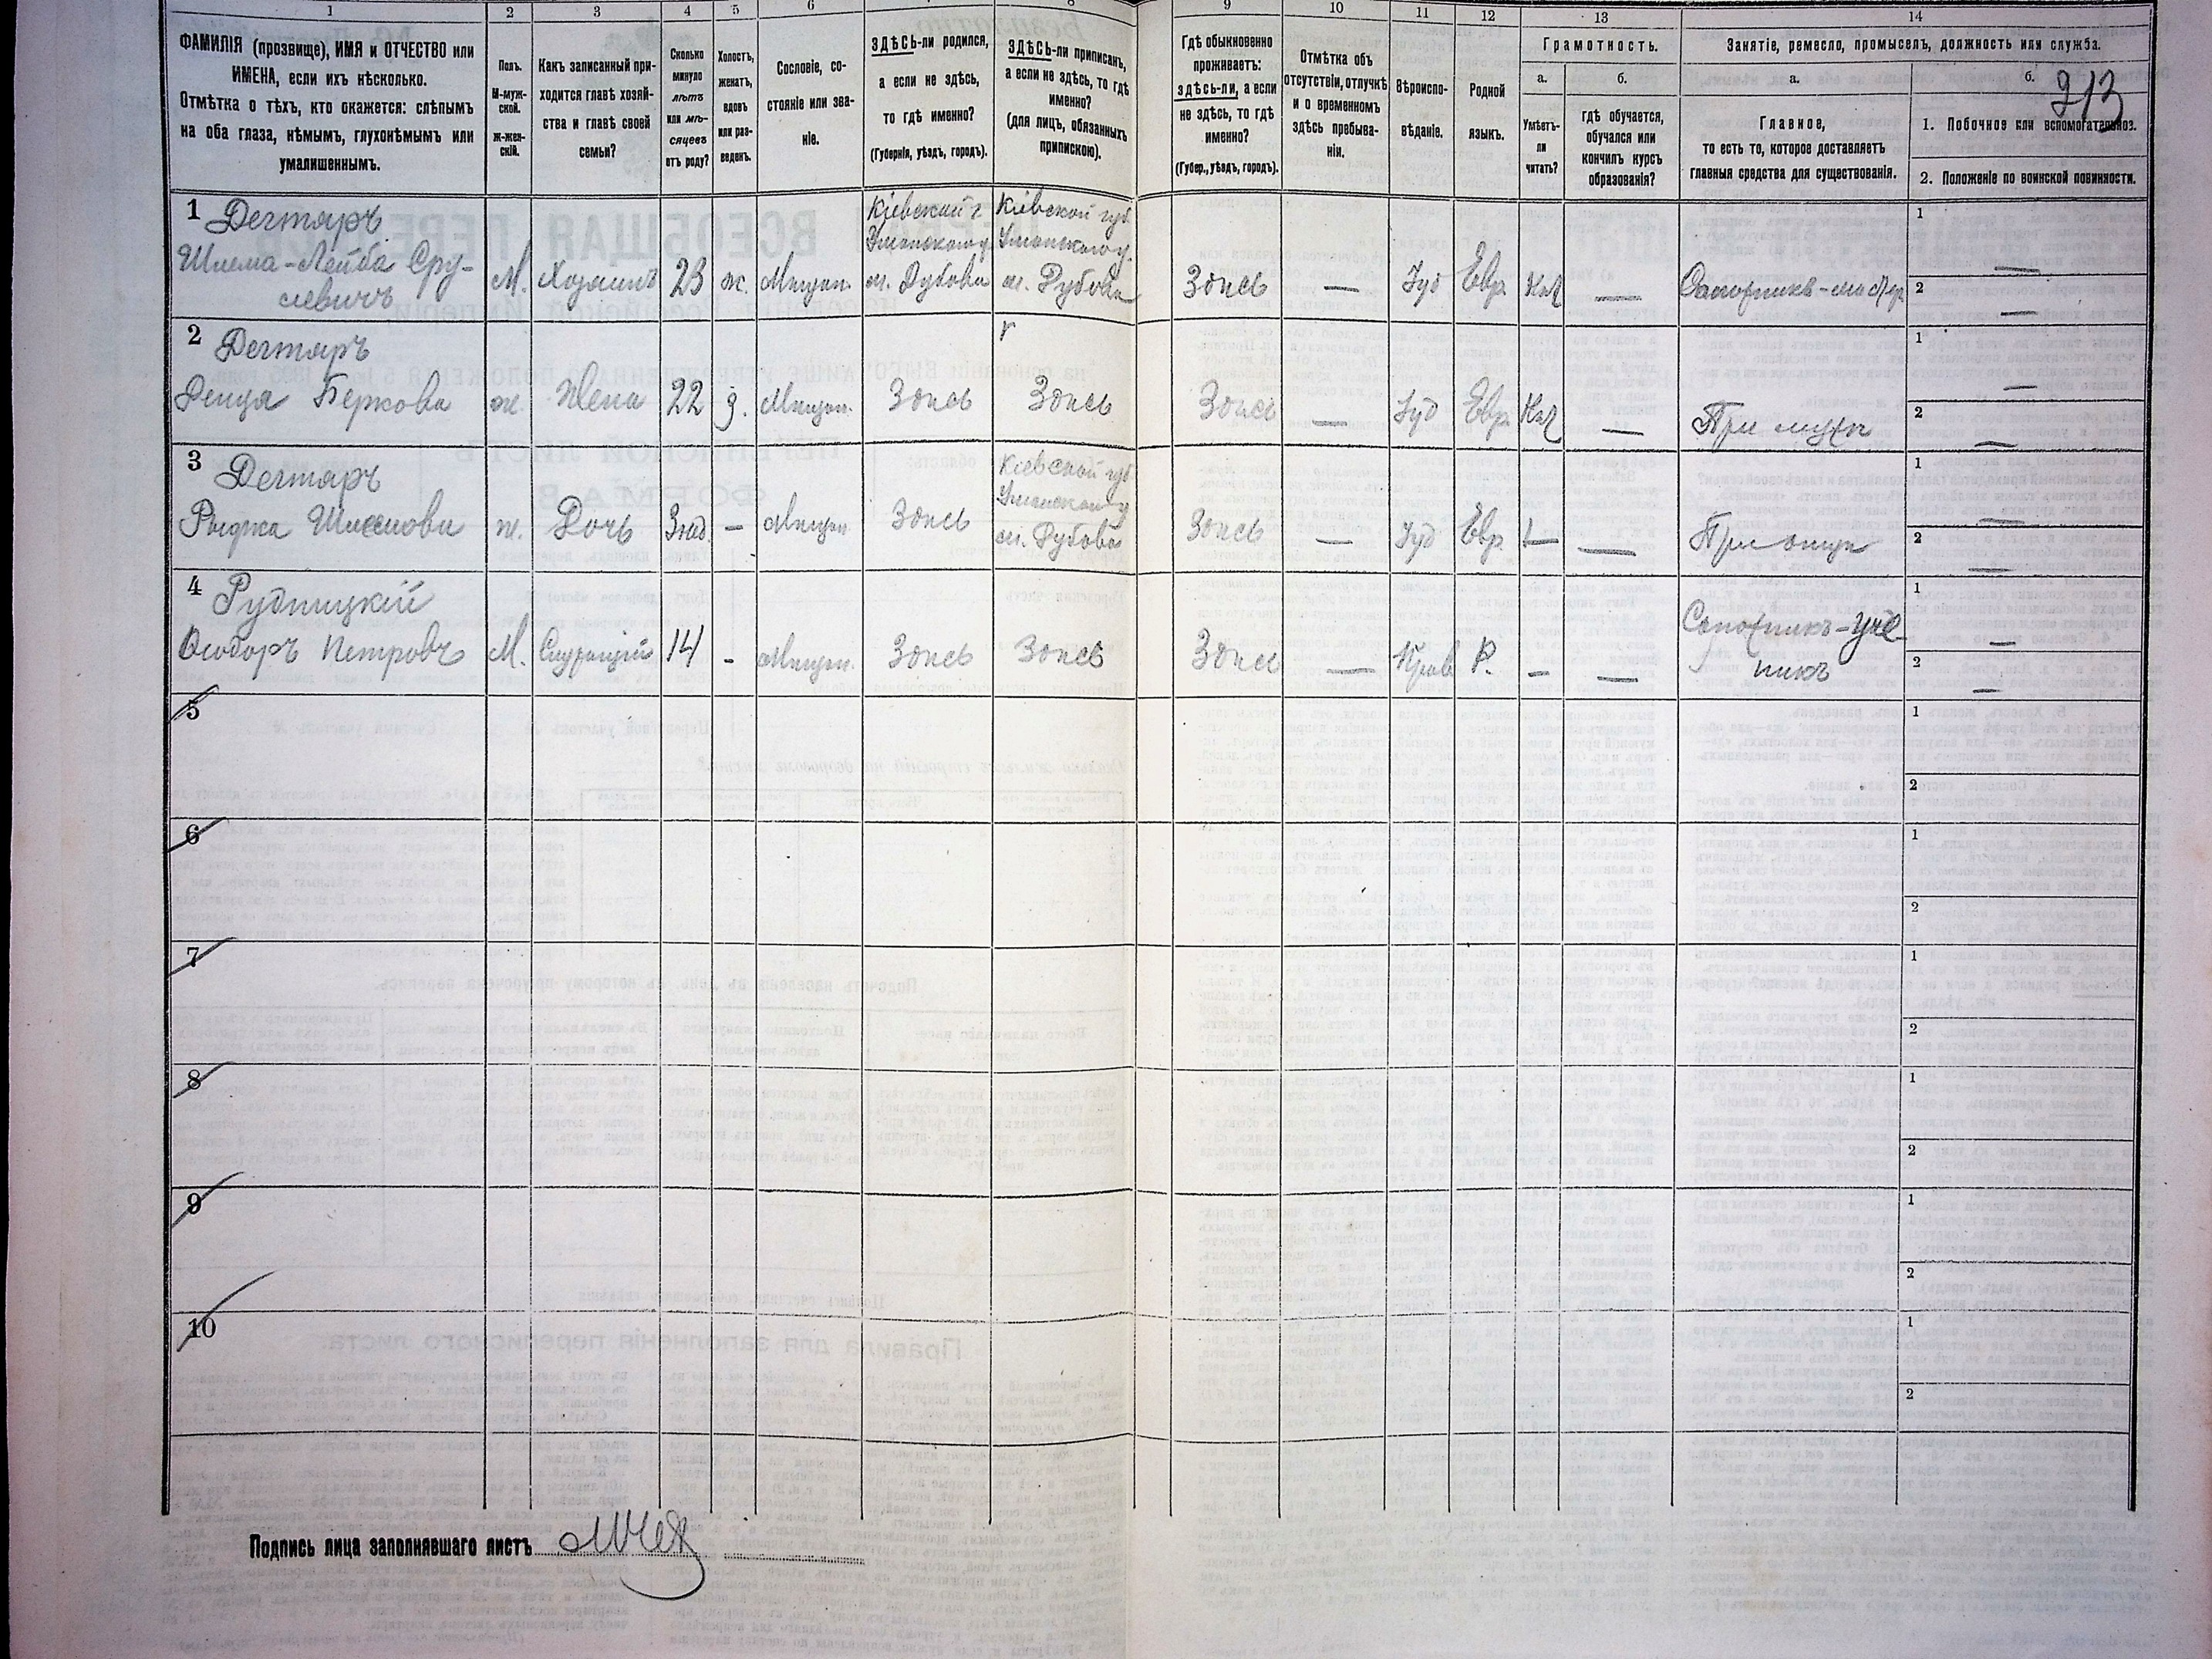 1 2 3 4 5 6 7 8 9 10 11 12 13 14
ФАМИЛІЯ (прозвище), ИМЯ и ОТЧЕСТВО или
ИМЕНА, если ихъ нѣсколько.
Отмѣтка о тѣхъ, кто окажется: слѣпымъ
на оба глаза, нѣмымъ, глухонѣмымъ или
умалишеннымъ.
Полъ.
М-муж-
ской.
ж-жен-
скій.
Какъ записанный при-
ходится главѣ хозяй-
ства и главѣ своей
семьи?
Сколько
минуло
лѣтъ
или мѣ-
сяцевъ
отъ роду?
Холостъ,
женатъ,
вдовъ
или раз-
веденъ.
Сословіе, со-
стояніе или зва-
ніе.
ЗДѢСЬ-ли родился,
а если не здѣсь,
то гдѣ именно?
(Губернія, уѣздъ, городъ).
ЗДѢСЬ-ли приписанъ,
а если не здѣсь, то гдѣ
именно?
(для лицъ, обязанныхъ
припискою).
Гдѣ обыкновенно
проживаетъ:
здѣсь-ли, а если
не здѣсь, то гдѣ
именно?
(Губер., уѣздъ, городъ).
Отмѣтка объ
отсутствіи, отлучкѣ
и о временномъ
здѣсь пребыва-
ніи.
Вѣроиспо-
вѣданіе.
Родной
языкъ.
Грамотность.
а.
Умѣетъ-
ли
читать?
б.
гдѣ обучается,
обучался или
кончилъ курсъ
образованія?
Занятіе, ремесло, промыселъ, должность или служба.
а.
Главное,
то есть то, которое доставляетъ
главныя средства для существованія.
б.
213
1. Побочное или вспомогательное.
2. Положеніе по воинской повинности.
1 Дегтяръ
Шлема-Лейба Сру-
левичъ
М. Хозяинъ 23 ж. Мѣщан.
Кіевской г
Уманскаго у.
м. Дубова
Кіевской губ.
Уманскаго у.
м. Дубова
Здѣсь — Іуд Евр. —
Сапожникъ-мастер
1 —
2 —
2 Дегтяръ
Беркова ж. Жена 22 з. Мѣщан. Здѣсь Здѣсь Здѣсь — Іуд Евр. —
При мужѣ
1 —
2 —
3 Дегтяръ
ж. Дочь 3 Мѣщан. Здѣсь
Кіевской губ.
Уманскаго у
м. Дубова
Здѣсь — Іуд Евр. — —
При отцѣ
1 —
2 —
4 Рудницкій
Ѳеодоръ Петровъ М. Служащій 14 - Мѣщан. Здѣсь Здѣсь Здѣсь — Прав Р. - —
Сапожникъ-уче
никъ
1 —
2 —
5 1
2
6 1
2
7 1
2
8 1
2
9 1
2
10 1
2
Подпись лица заполнявшаго листъ